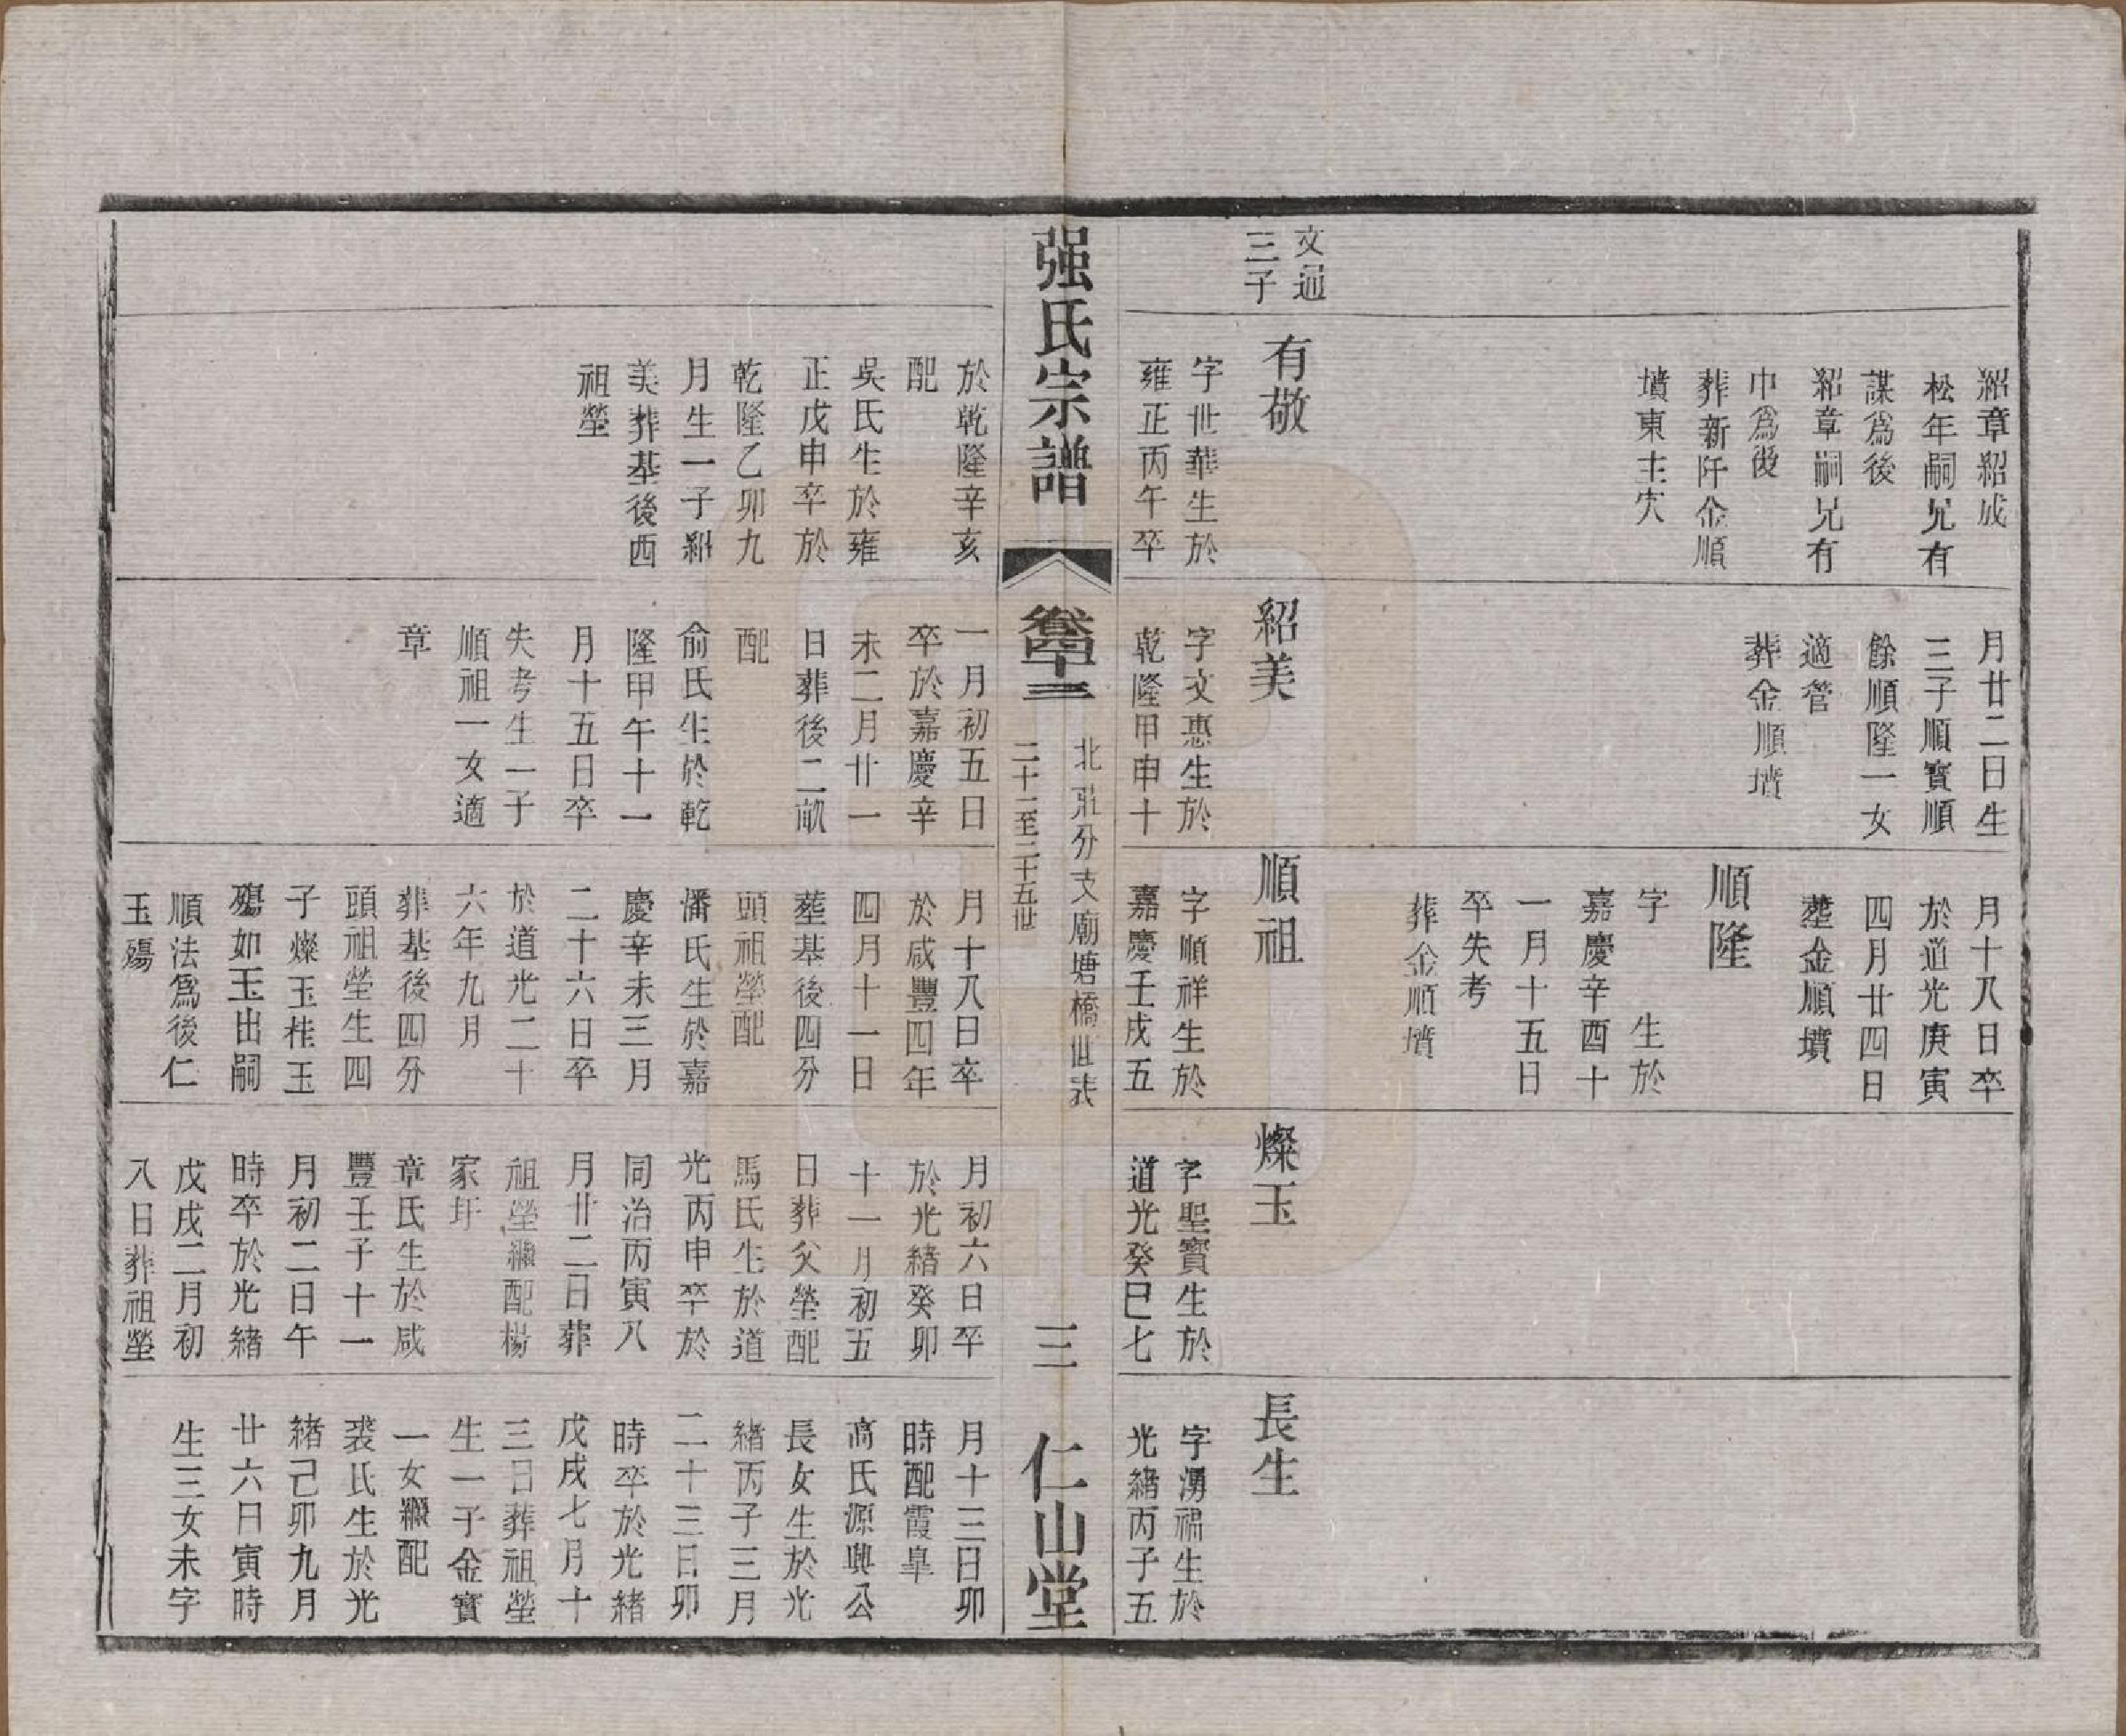 紹章紹成
松年嗣兄有
謀爲後
紹章嗣兄有
巾爲後
葬新阡金順
墳東主穴
月廿二日生
三子順寳順
餘順隆一女
適管
葬金順墳
月十八日卒
於道光庚寅
四月廿四日
塟金順墳
順隆
字 生於
嘉慶辛酉十
一月十五日
卒失考
葬金順墳
文通
三子
有敬
字世華生於
雍正丙午卒
紹美
字文惠生於
乾隆甲申十
順祖
字順祥生於
嘉慶壬戌五
燦玉
字聖寳生於
道光癸巳七
長生
字湧福生於
光緒丙子五
强氏宗譜
卷十三
北莊分支廟塘橋世表
二十一至二十五世
三
仁山堂
於乾隆辛亥
配
吳氏生於雍
正戊申卒於
乾隆乙卯九
月生一子紹
美葬基後西
祖塋
一月初五日
卒於嘉慶辛
未二月廿一
日葬後二畝
配
俞氏生於乾
隆甲午十一
月十五日卒
失考生一子
順祖一女適
章
月十八日卒
於咸豐四年
四月十一日
塟基後四分
頭祖塋配
潘氏生於嘉
慶辛未三月
二十六日卒
於道光二十
六年九月
葬基後四分
頭祖塋生四
子燦玉桂玉
殤如玉出嗣
順法爲後仁
玉殤
月初六日卒
於光緒癸卯
十一月初五
日葬父塋配
馬氏生於道
光丙申卒於
同治丙寅八
月廿二日葬
祖塋繼配楊
家圩
章氏生於咸
豐壬子十一
月初二日午
時卒於光緒
戊戌二月初
八日葬祖塋
月十三日卯
時配霞皐
高氏源興公
長女生於光
緒丙子三月
二十三日卯
時卒於光緒
戊戌七月十
三日葬祖塋
生一子金寳
一女繼配
裘氏生於光
緒己卯九月
廿六日寅時
生三女未字